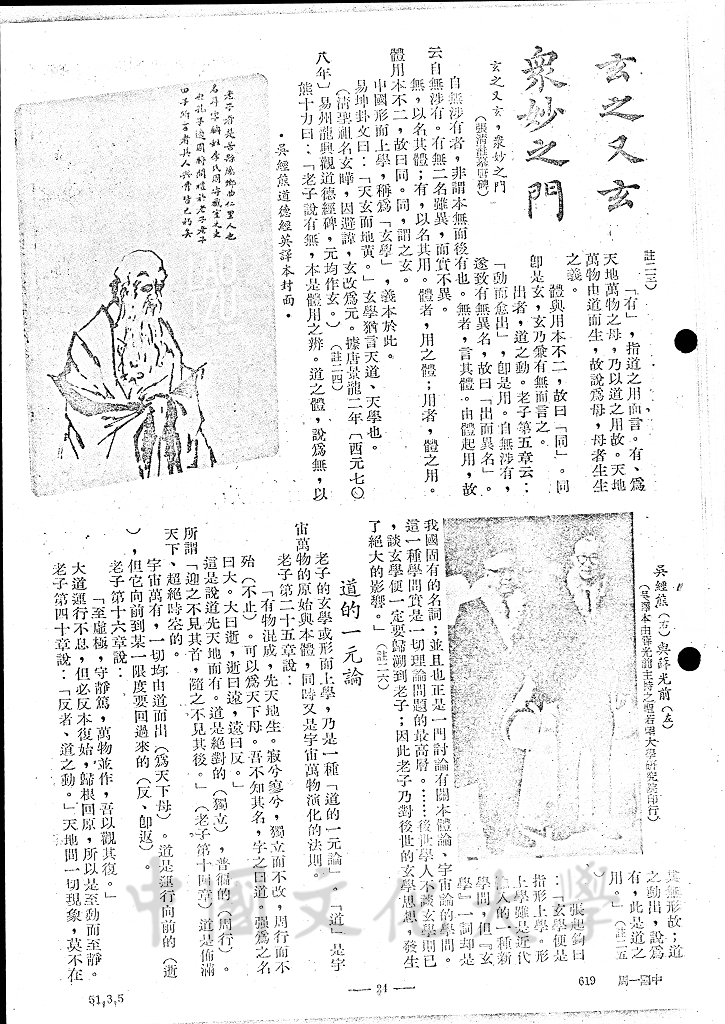 玄之又玄
衆妙之門
玄之又玄，衆妙之門
（張清註墓碑）
註二三）
「有」，指道之用而言。有、爲
天地萬物之母，乃以道之用故。天地
萬物由道而生，故說爲母，母者生生
之義。
體與用本不二，故曰「同」。同
卽是玄，玄乃兼有無而言之。
出者，道之動。老子第五章云：
「動而愈出」，卽是用。自無涉有，
遂致有無異名，故曰「出而異名」。
自無涉有者，非謂本無而後有也。無者，言其體。由體起用，故
云自無涉有。有無二名雖異，而實不異。
無，以名其體；有，以名其用。體者，用之體；用者，體之用。
體用本不二，故曰同。同，謂之玄。
中國形而上學，稱爲「玄學」，義本於此。
易坤卦文曰：「天玄而地黃。」玄學猶言天道、天學也。
（清聖祖名玄曄，因避諱，玄改爲元。據唐景龍二年〔西元七〇
八年〕易州龍興觀道德經碑，元均作玄。）（註二四）
熊十力曰：「老子說有無，本是體用之辨。道之體，說爲無，以
・吳經熊道德經英譯本封面・
老子者楚苦縣厲鄉曲仁里人也
名耳字聃姓李氏周守藏室之史
也孔子適周將問禮於老子老子
曰子所言者其人與骨皆已朽矣
吳經熊（右）與薛光前（左）
（吳譯本由薛光前主持之聖若望大學研究院印行）
其無形故；道
之動出，說爲
有，此是道之
用。」（註二五
）
張起鈞曰
：「玄學便是
指形上學。形
上學雖是近代
注入的一種新
學問，但『玄
學』一詞却是
我國固有的名詞；並且也正是一門討論有關本體論、宇宙論的學問。
這一種學問實是一切理論問題的最高層。……後世學人不談玄學則已
，談玄學便一定要歸溯到老子；因此老子乃對後世的玄學思想，發生
了絕大的影響。」（註二六）
道的一元論
老子的玄學或形而上學，乃是一種「道的一元論」。「道」是宇
宙萬物的原始與本體，同時又是宇宙萬物演化的法則。
老子第二十五章說：
「有物混成，先天地生。寂兮寞兮，獨立而不改，周行而不
殆（不止）。可以爲天下母。吾不知其名，字之曰道。强爲之名
曰大。大曰逝，逝曰遠，遠曰反。」
這是說道先天地而有。道是絕對的（獨立），普徧的（周行）。
所謂「迎之不見其首，隨之不見其後。」（老子第十四章）道是佈滿
天下、超絕時空的。
宇宙萬有，一切均由道而出（爲天下母）。道是運行向前的（逝
），但它向前到某一限度要回過來的（反、卽返）。
老子第十六章說：
「至虛極，守靜篤，萬物並作，吾以觀其復。」
大道運行不息，但必反本復始，歸根回原，所以是至動而至靜。
老子第四十章說：「反者、道之動。」天地間一切現象，莫不在
中國文化大學
51,3,5
—34—
619 中國一周